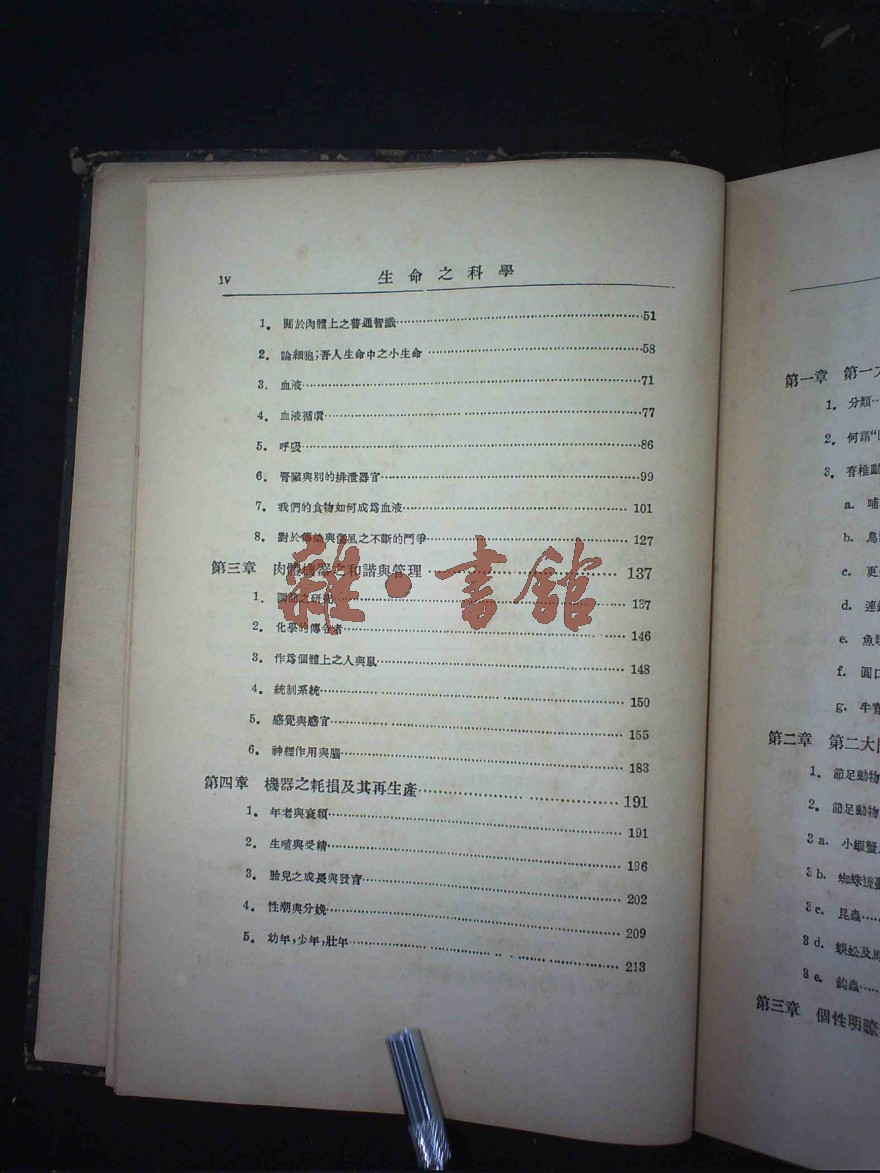 iv 生命之科學
1. 關於肉體上之普通智識 51
2. 論細胞;吾人生命中之小生命 58
3. 血液 71
4. 血液循環 77
5. 呼吸 86
6. 腎臟與別的排泄器官 99
7. 我們的食物如何成爲血液 101
8. 對於傳染與傷風之不斷的鬥爭 127
第三章 肉體機器之和諧與管理 137
1. 調節之研究 137
2. 化學的傳令者 146
3. 作爲個體上之人與鼠 148
4. 統制系統 150
5. 感覺與感官 155
6. 神經作用與腦 183
第四章 機器之耗損及其再生產 191
1. 年老與衰頹 191
2. 生殖與受精 196
3. 胎兒之成長與發育 202
4. 性潮與分娩 209
5. 幼年,少年,壯年 213
雜·書館
第一章 第一大
1. 分類
2. 何謂
3. 脊椎動
a. 哺
b. 鳥
c. 更
d. 連
e. 魚類
f. 圓口
g. 半脊
第二章 第二大
1. 節足動物
2. 節足動物
3 a. 小蝦蟹
3 b. 蜘蛛
3 c. 昆蟲
3 d. 蜈蚣及馬
3 e. 鈎蟲
第三章 個性明瞭